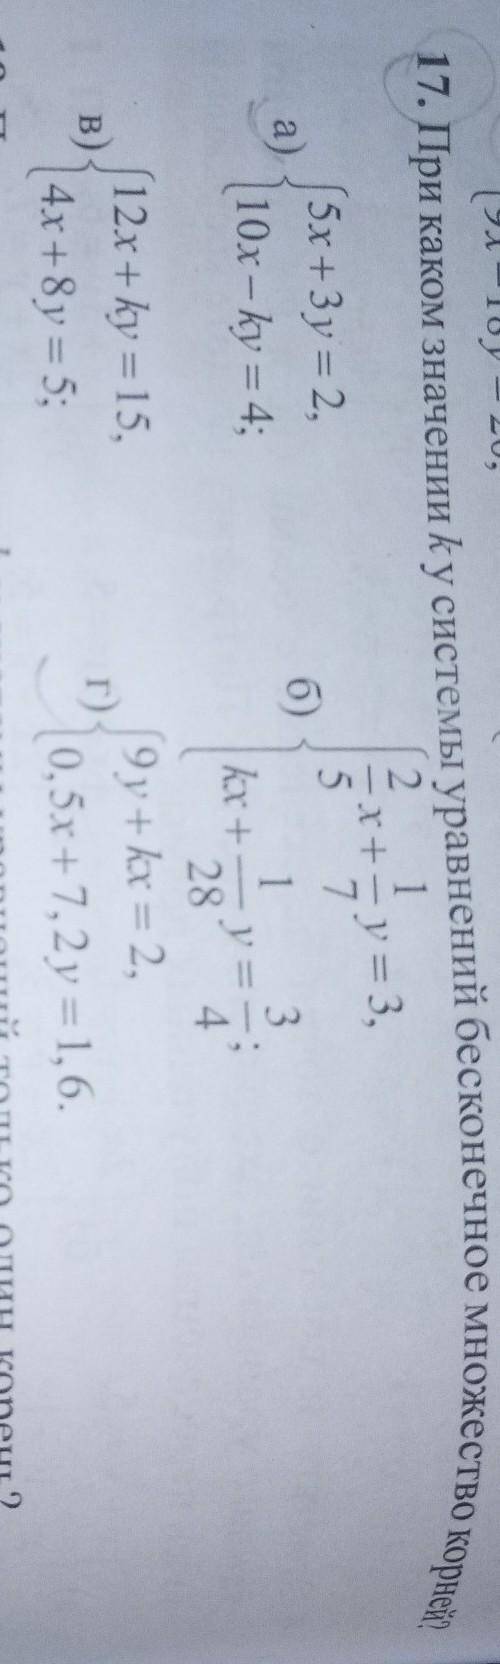 9x − 16y = 20,
17. При каком значении k у системы уравнений бесконечное множество корней?
а) {5x + 3y = 2,
10x − ky = 4;
б) {2/5 x + 1/7 y = 3,
kx + 1/28 y = 3/4;
в) {12x + ky = 15,
4x + 8y = 5;
г) {9y + kx = 2,
0,5x + 7,2y = 1,6.
только один корень?